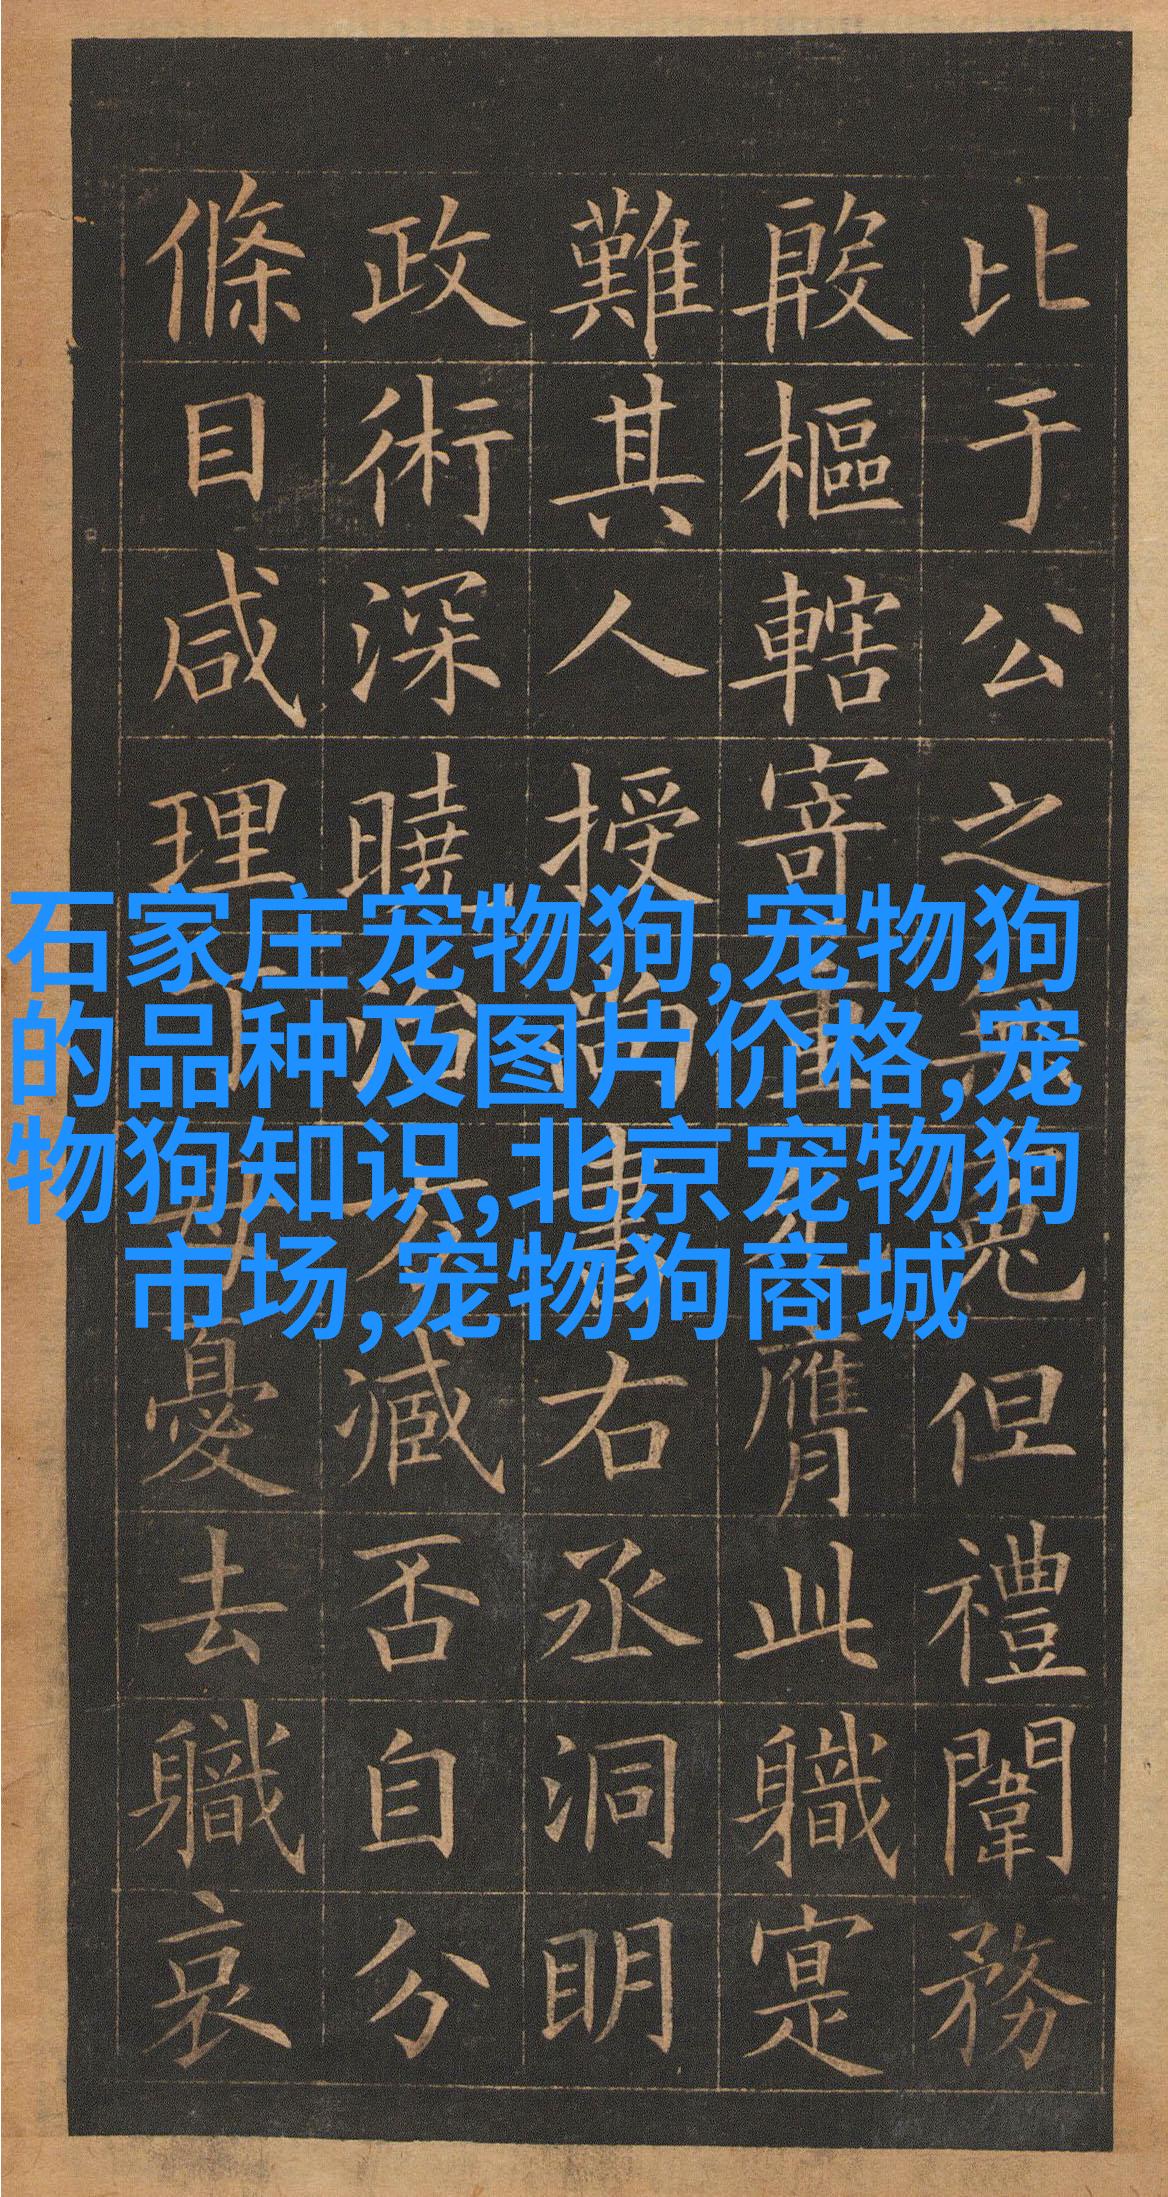 比于公之無冤但禮闈務
殷樞轄寄重膺此職寔
難其人授尚書右丞洞明
政術深曉臧否自分
條目咸理憂去職哀
石家庄宠物狗,宠物狗
的品种及图片价格,宠
物狗知识,北京宠物狗
市场,宠物狗商城